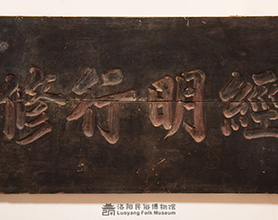 經明行修
洛阳民俗博物馆
Luoyang Folk Museum